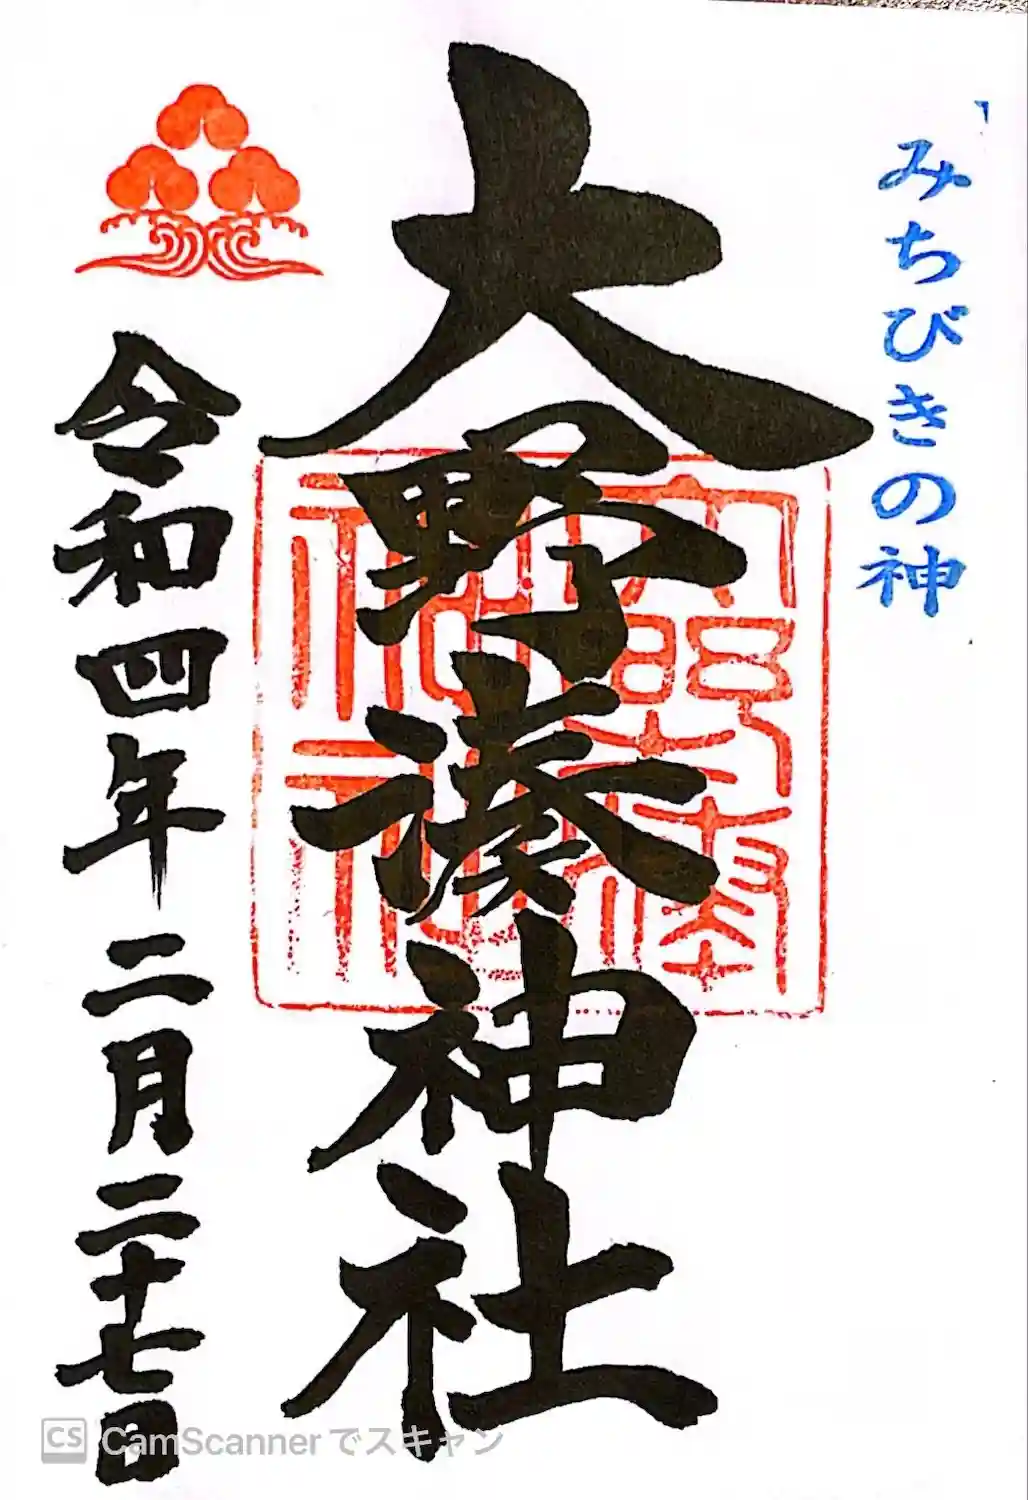 みちびきの神
大野湊神社
令和四年二月二十七日
CS CamScannerでスキャン